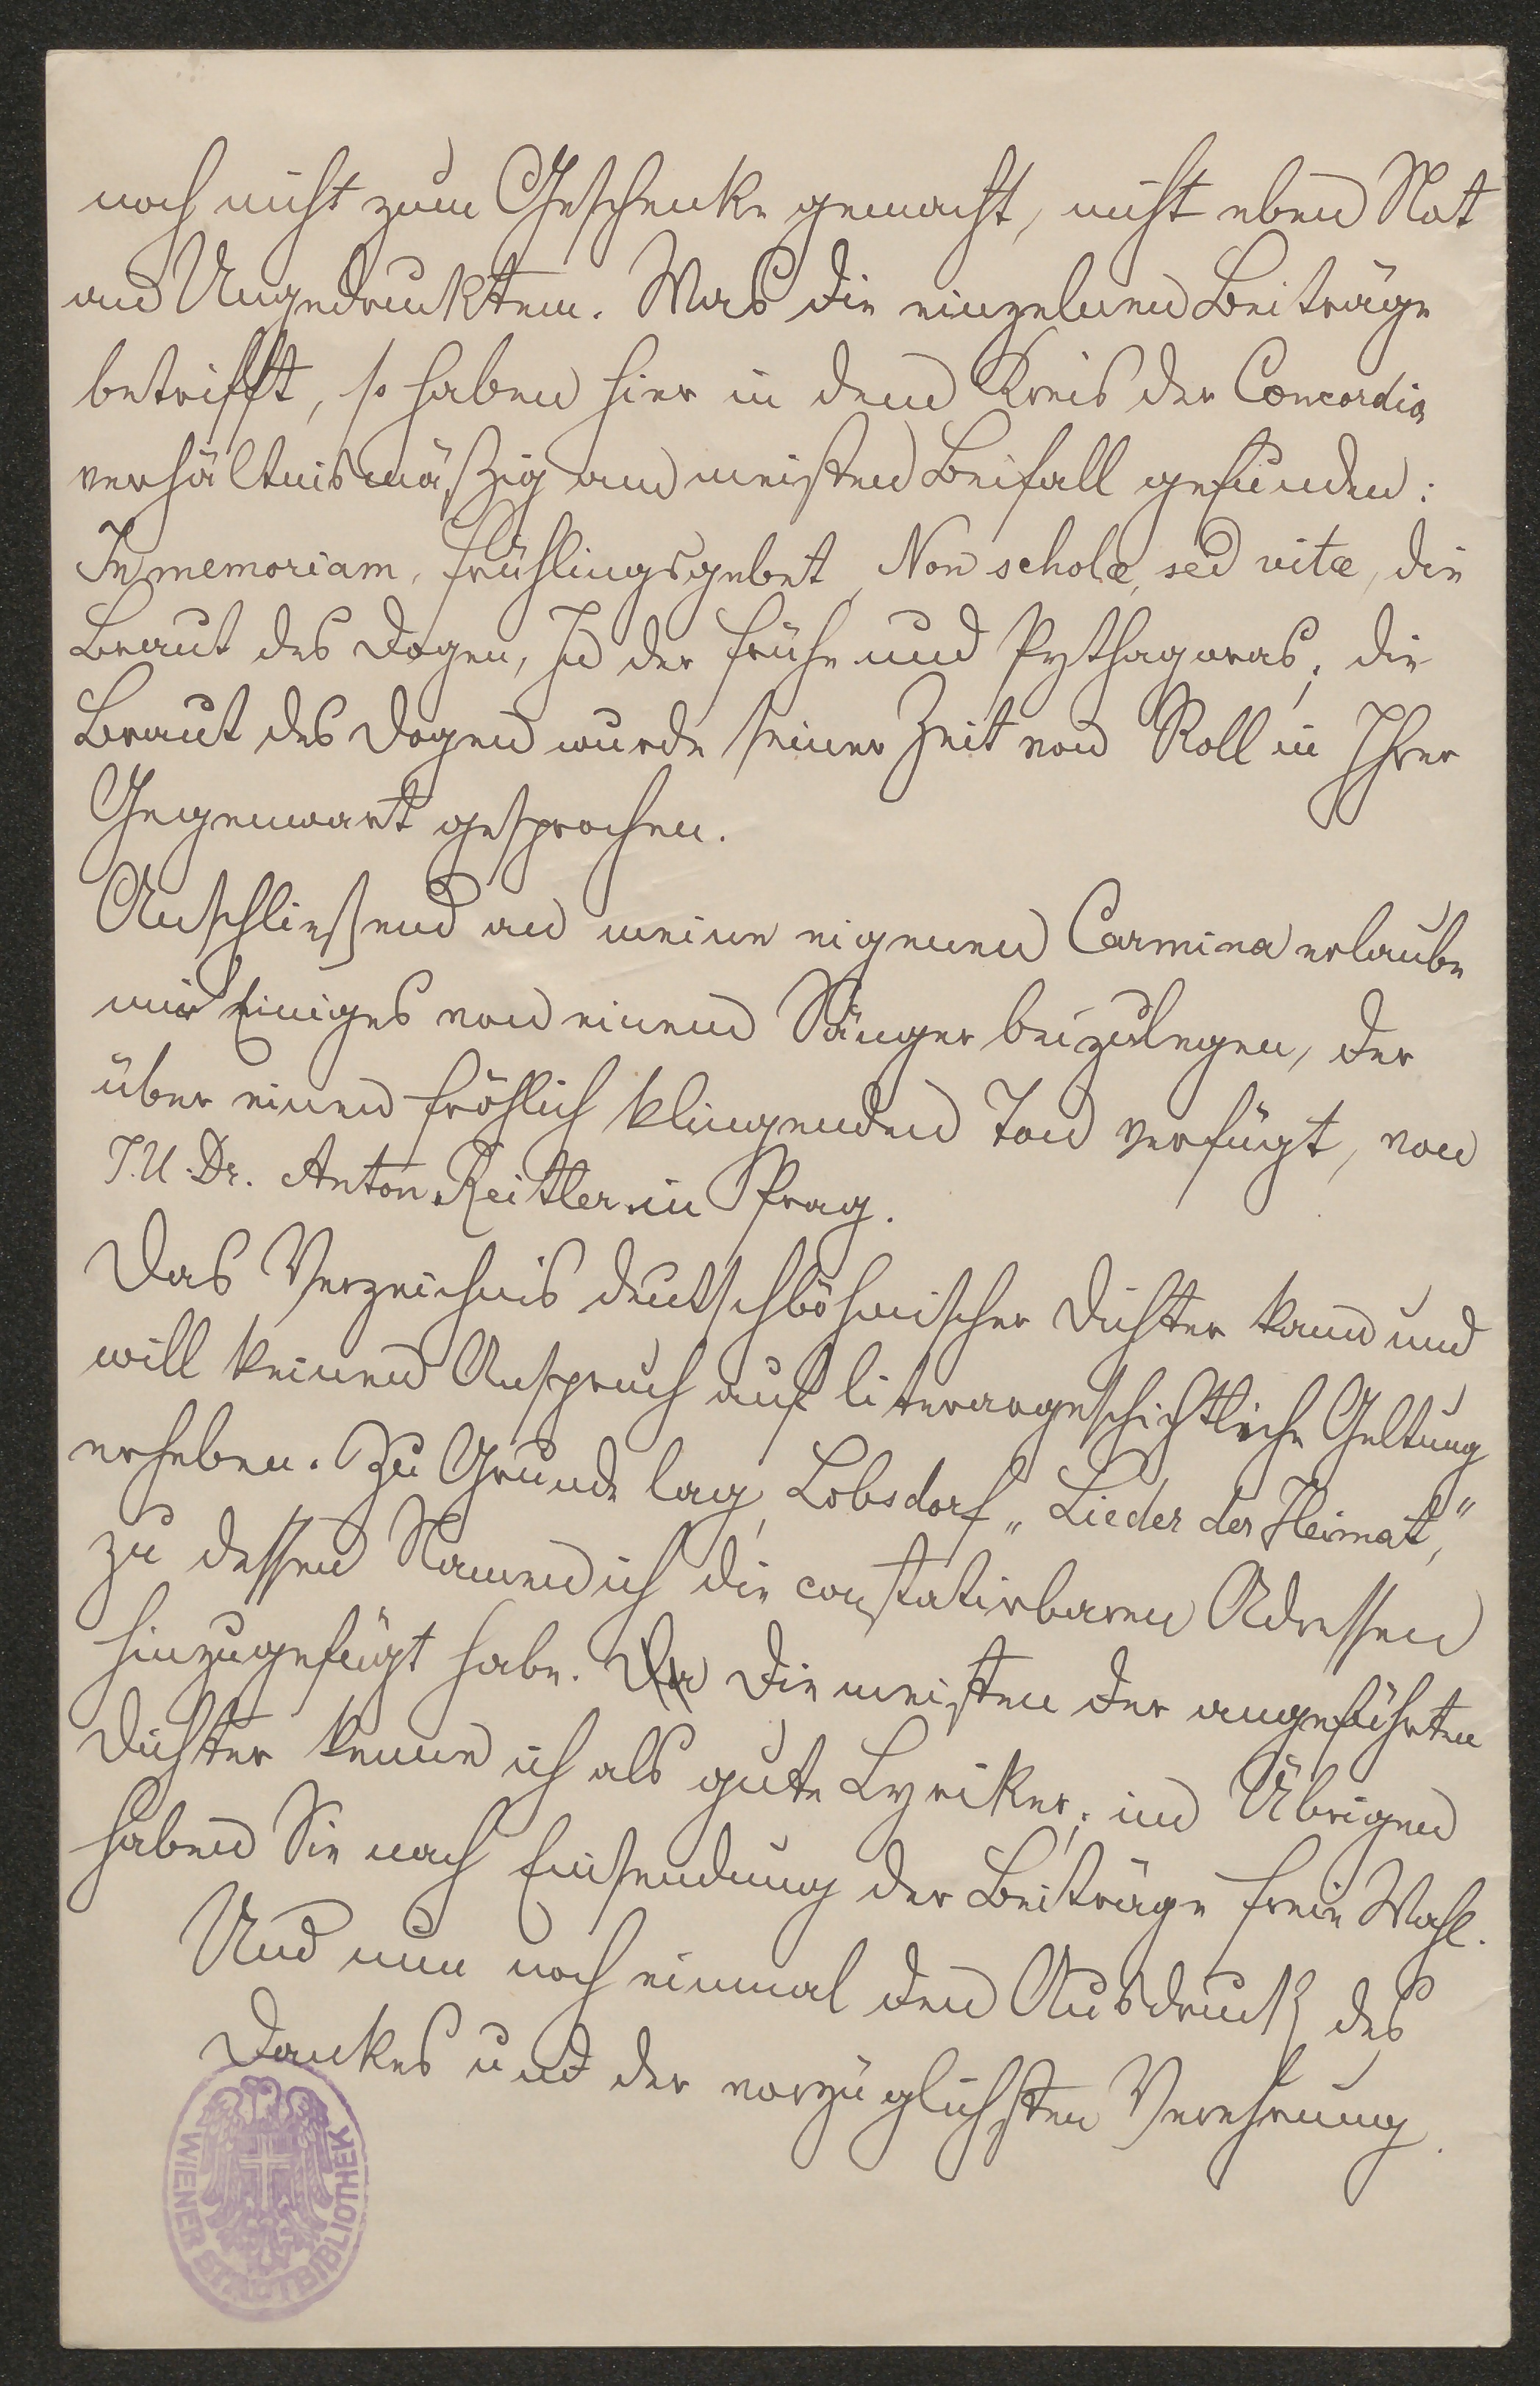 noch nicht zum Geschenke gemacht, nicht eben Not
an Ungedrucktem. Was die einzelnen Beiträge
betrifft, so haben hier in dem Kreis der Concordia
verhältnismäßig am meisten Beifall gefunden:
In memoriam, Frühlingsgebet, Non scholæ, sed vitæ, die
Braut des Dogen, In der Frühe und Pythagoras; die
Braut des Dogen wurde seiner Zeit von Roll in Ihrer
Gegenwart gesprochen.
Anschließend an meine eigenen Carmina erlaube
mir Einiges von einem Sänger beizulegen, der
über einen fröhlich klingenden Ton verfügt, von
J.U.Dr. Anton Reitler in Prag.
Das Verzeichnis deutschböhmischer Dichter kann und
will keinen Anspruch auf literargeschichtliche Geltung
erheben. Zu Grunde lag Lobsdorf „Lieder der Heimat,"
zu dessen Namen ich die constatirbaren Adressen
hinzugefügt habe. Die meisten der angeführten
Dichter kenne ich als gute Lyriker; im Übrigen
haben Sie nach Einsendung der Beiträge freie Wahl.
Und nun noch einmal den Ausdruck des
Dankes und der vorzüglichsten Verehrung.
WIENER STADTBIBLIOTHEK